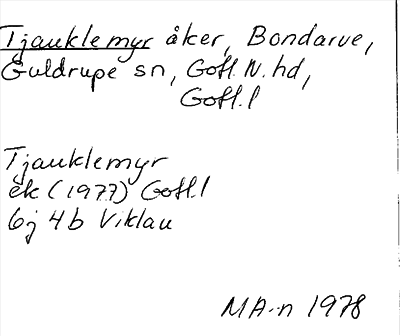 Tjauklemyr åker, Bondarve,
Guldrupe sn, Gotl. N. hd,
Gotl. l
Tjauklemyr
ek (1977) Gotl. l
6j 4b Viklau
MA-n 1978